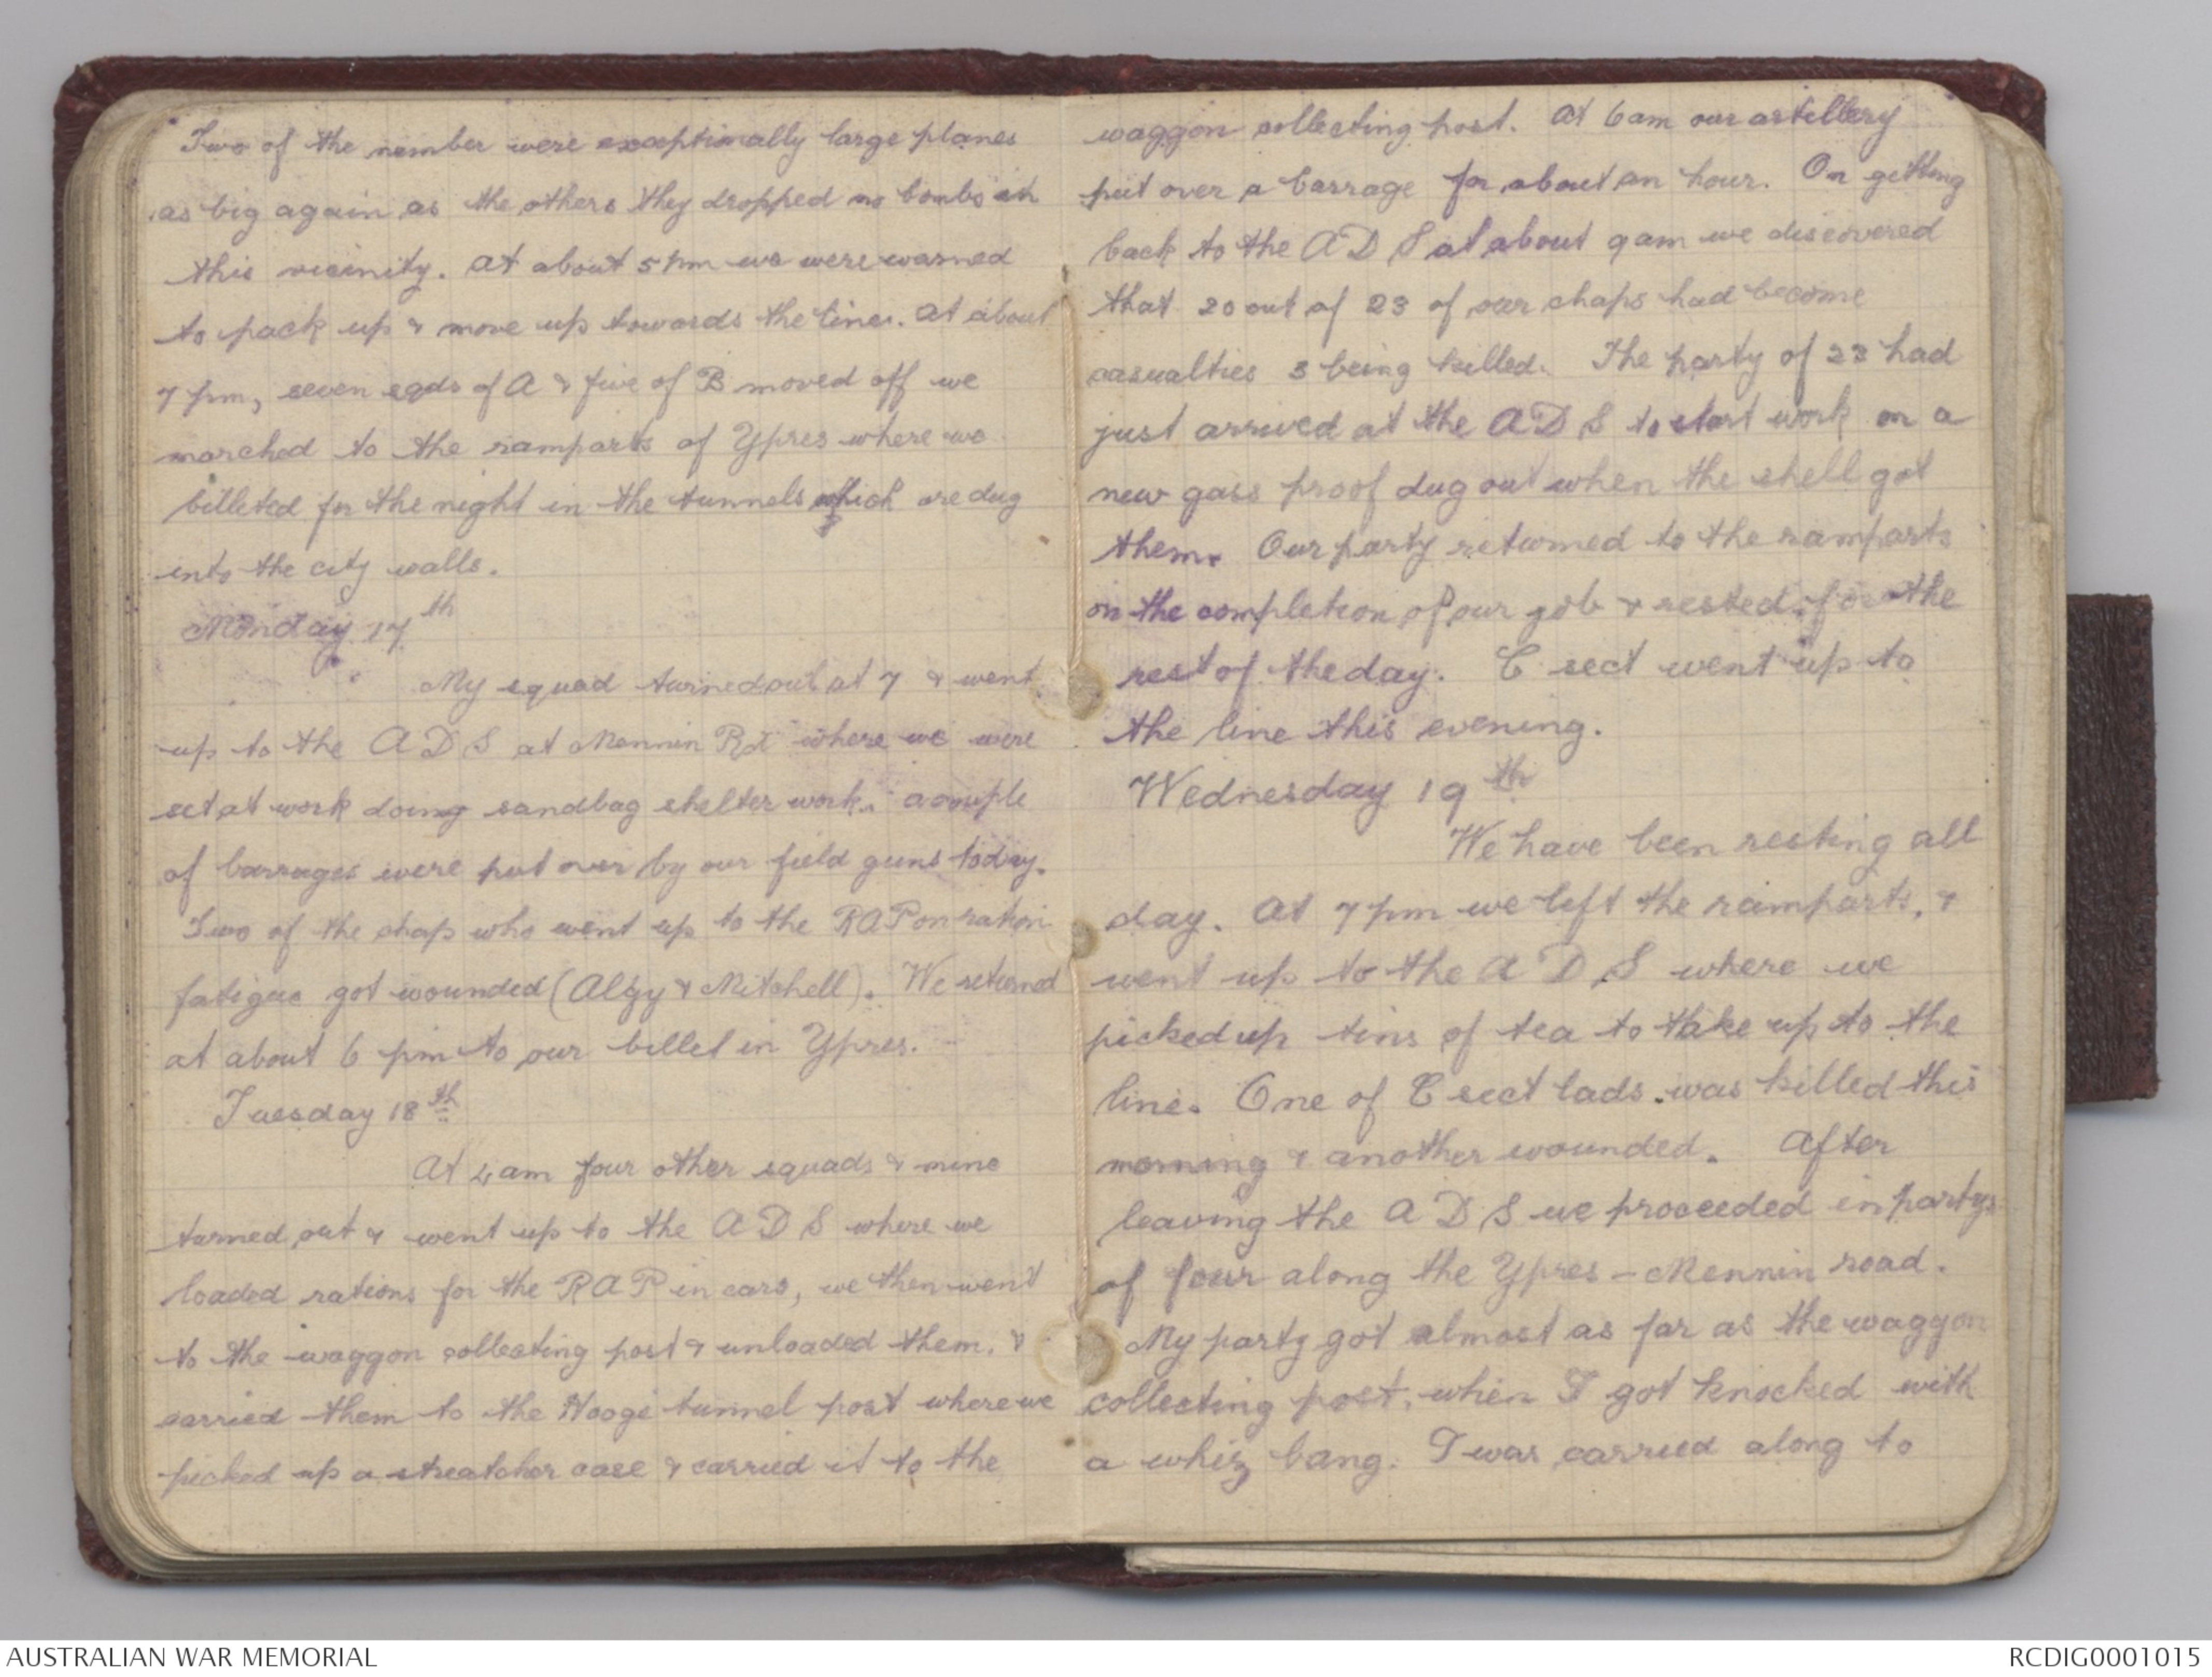 Two of the nember were exceptionally large planes
as big again as the others they dropped no bombs in
this vicinity. At about 5 pm we were warned
to pack up & move up towards the line. At about
7 pm, seven sqds of A & five of B moved off we
marched to the ramparts of Ypres where we
billeted for the night in the tunnels which are dug
into the city walls.
Monday 17th
My squad turned out at 7 & went
up to the A D S at Mennin Rd where we were
set at work doing sandbag shelter work. a couple
of barrages were put over by our field guns today.
Two of the chaps who went up to the RAP on ration
fatigue got wounded (Algy & Mitchell). We returned
at about 6 pm to our billet in Ypres.
Tuesday 18th
At 4 am four other squads & mine
turned out & went up to the A D S where we
loaded rations for the RAP in cars, we then went
to the waggon collecting post & unloaded them, &
carried them to the Hooge tunnel post where we
picked up a streatcher case & carried it to the
waggon collecting post. At 6 am our artillery
put over a barrage for about an hour. On getting
back to the A D S at about 9 am we discovered
that 20 out of 23 of our chaps had become
casualties 3 being killed. The party of 23 had
just arrived at the A D S to start work on a
new gass proof dug out when the shell got
them. Our party returned to the ramparts
on the completion of our job & rested for the
rest of the day. C sect went up to
the line this evening.
Wednesday 19th
We have been resting all
day. At 7 pm we left the ramparts, &
went up to the A D S where we
picked up tins of tea to take up to the
line. One of C sect lads was killed this
morning & another wounded. After
leaving the A D S we proceeded in partys
of four along the Ypres - Mennin road.
My party got almost as far as the waggon
collecting post, when I got knocked with
a whiz bang. I was carried along to
AUSTRALIAN WAR MEMORIAL
RCDIG0001015